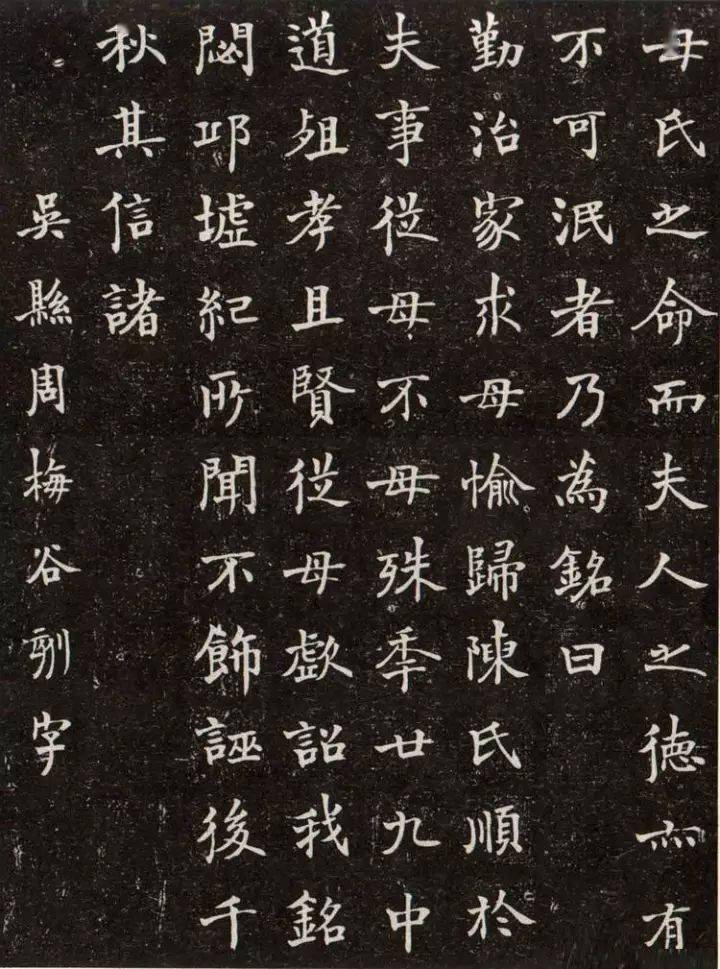 母氏之命而夫人之德亦有
不可泯者乃為銘曰
勤治家求母愉歸陳氏順於
夫事從母不母殊年廿九中
道殂孝且賢從母戲詔我銘
閟邱墟紀所聞不飾誣後千
秋其信諸
吳縣周梅谷刻字